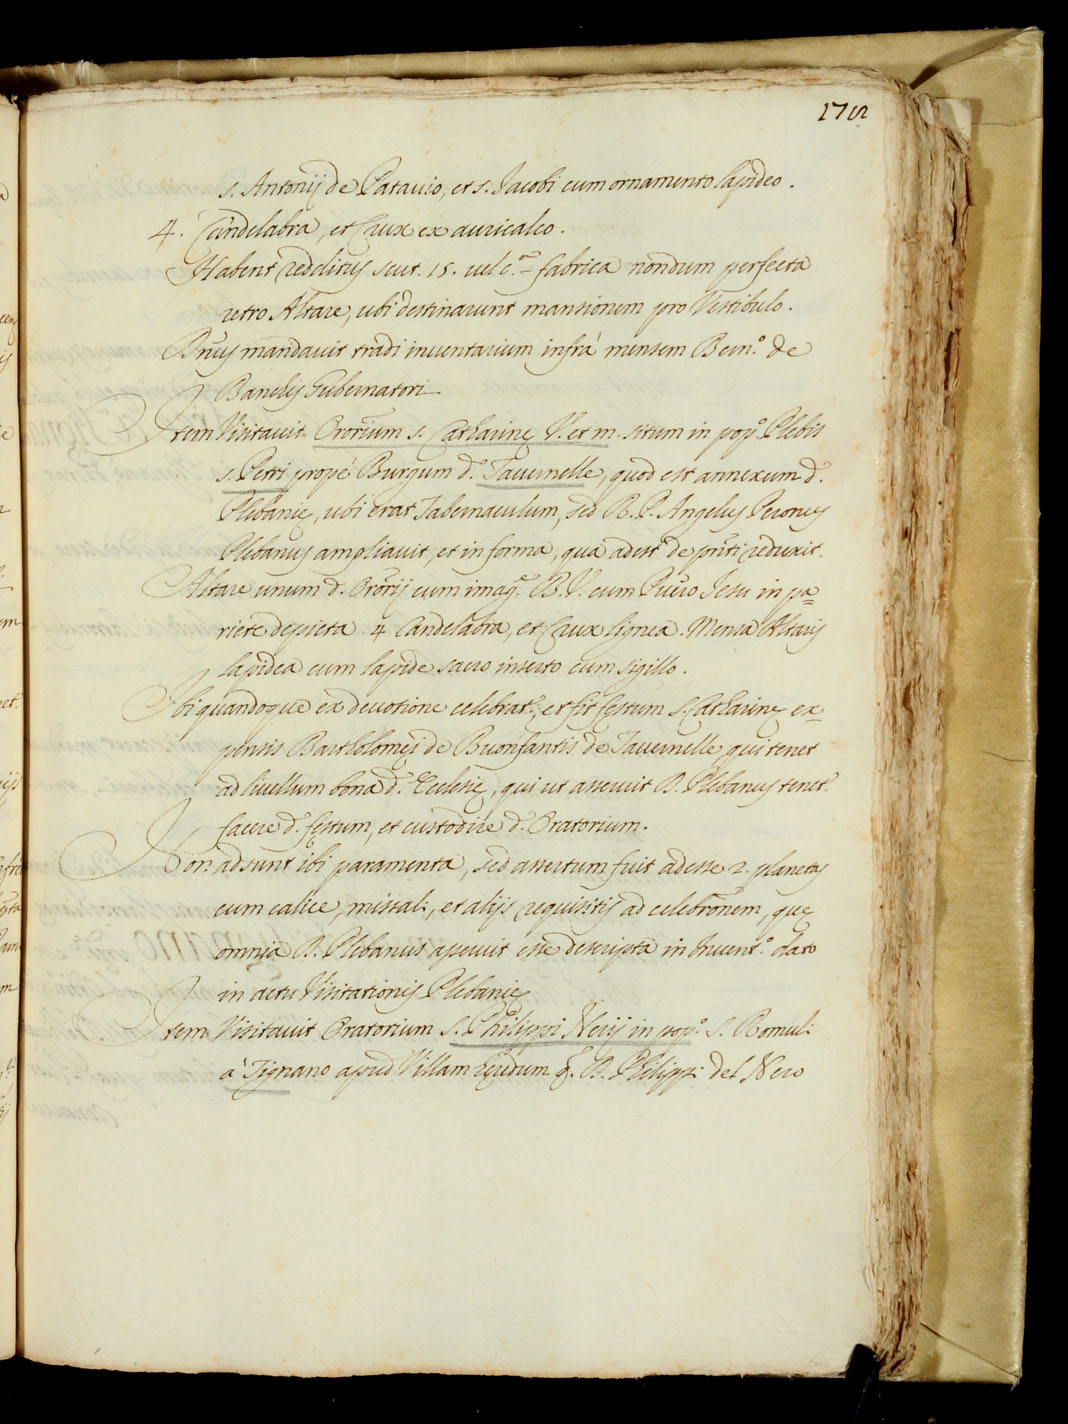 172
s. Antonij de Patauio, et s. Jacobi cum ornamento lapideo.
4. Candelabra, et Crux ex auricalco.
Habent redditus scut. 15. uel c.ª fabrica nondum perfecta
retro Altare, ubi destinarunt mansionem pro Vestibulo.
mandauit tradi inuentarium infrà mensem Bern.º de
Gubernatori
Item Visitauit Ororium s. Catharinę V. et m. situm in pop.º Plebis
s. Petri propè Burgum d.ª Tauernelle, quod est annexum d.ª
Plebanię, ubi erat Tabernaculum, sed R. P. Angelus Peronus
Plebanus ampliauit, et in forma, qua adest de pnti reduxit.
Altare unum d. Ororij cum imag.ª B. V. cum Puero Jesu in pa=
riete depicta 4 Candelabra, et Crux lignea. Mensa Altaris
lapidea cum lapide sacro inserto cum sigillo.
Ibi quandoque ex deuotione celebrat.r, et fit festum S. Catharinę ex=
pensis Bartholomęi de Buonfantis de Tauernelle qui tenet
ad liuellum bona d.ª Ecclesię, qui ut asseruit R. Plebanus tenet.r
facere d. festum, et custodire d. Oratorium.
Non adsunt ibi paramenta, sed assertum fuit adesse 2. planetas
cum calice, missali, et alijs requisitis ad celebronem, quę
omnia R. Plebanus asseruit esse descripta in Inuent.º dato
in actu Visitationis Plebanię
Item Visitauit Oratorium S. Philippi Nerij in pop.º S. Romuli
à Tignano apud Villam hęredum q. D. Philippi del Nero